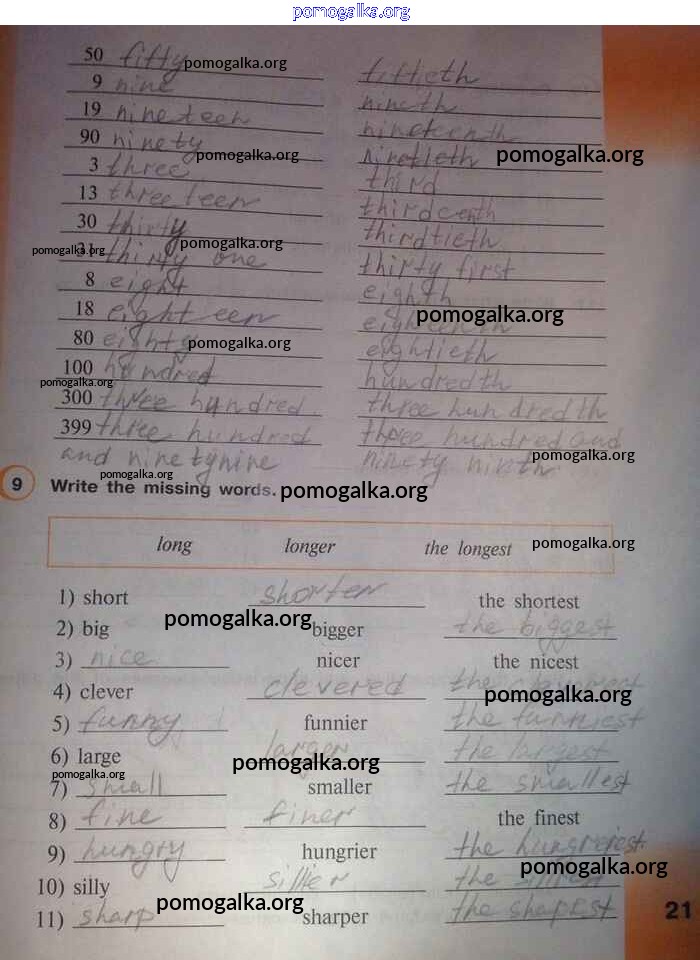 pomogalka.org
50 fifty pomogalka.org fiftieth
9 nine nineth
19 nineteen nineteenth
90 ninety pomogalka.org ninetieth pomogalka.org
3 three third
13 threeteen thirdeenth
30 thirty pomogalka.org thirdtieth
31 pomogalka.org thirty one thirty first
8 eight eighth
18 eighteen pomogalka.org
80 eighty pomogalka.org eightieth
100 hundred hundredth
pomogalka.org
300 three hundred three hundredth
399 three hundred three hundred and
and ninetynine ninety ninth pomogalka.org
9 Write the missing words. pomogalka.org pomogalka.org
long longer the longest pomogalka.org
1) short shorter the shortest
2) big pomogalka.org bigger the biggest
3) nice nicer the nicest
4) clever clevered the pomogalka.org
5) funny funnier the funniest
6) large larger pomogalka.org the largest
pomogalka.org
7) small smaller the smallest
8) fine finer the finest
9) hungry hungrier the
10) silly sillier the pomogalka.org
11) sharp pomogalka.org sharper the shapest
21